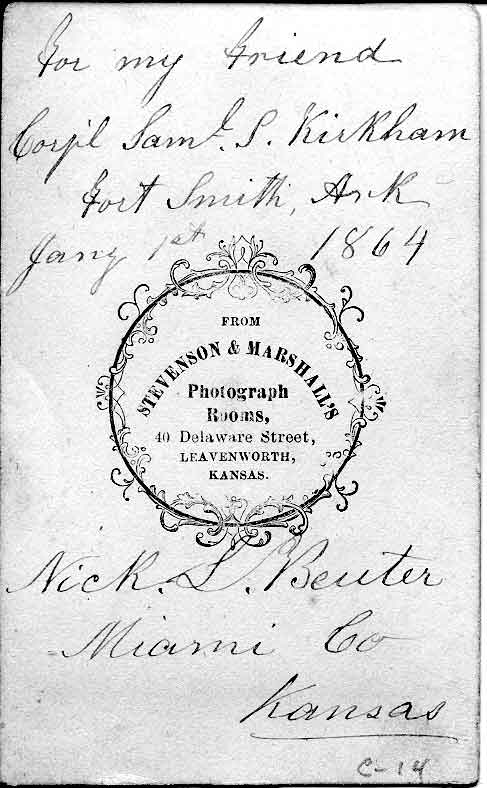 For my friend
Corp'l Saml. S. Kirkham
Fort Smith, Ark
Jany 1st 1864
FROM
STEVENSON & MARSHALL'S
Photograph
Rooms,
40 Delaware Street,
LEAVENWORTH,
KANSAS.
Nick. L. Beuter
Miami Co
Kansas
C-14